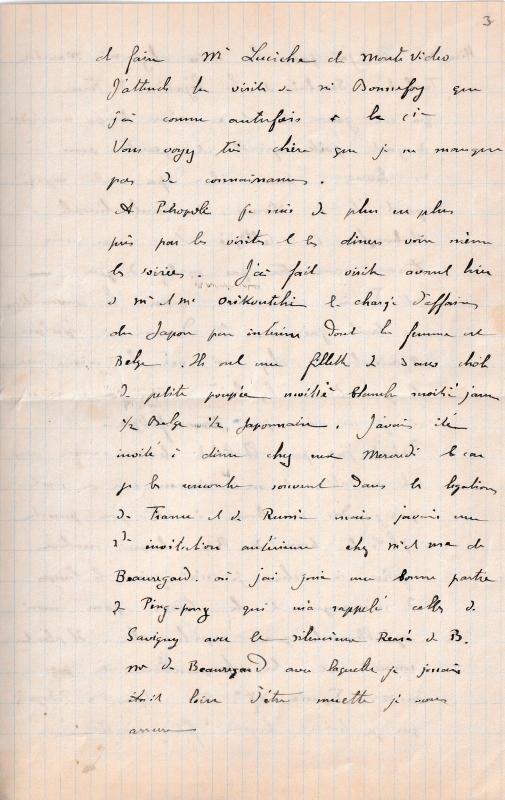 3
d faire Mr Luciche de Montevideo
J'attends la visite de Mr Bonnefoy que
j'ai connu autrefois à la Cie
Vous voyez très chère que je ne manque
pas de connaissances.
A Pétropolis je suis de plus en plus
pris par les visites et les diners voire même
les soirées. J'ai fait visite avant hier
à Mr et Me le chargé d'affaires
du Japon par intérim dont la femme est
Belge. Ils ont une fillette de 3 ans drôle
de petite poupée moitié blanche moitié jaune
1/2 Belge 1/2 Japonaise. J'avais été
invité à diner chez eux Mercredi le car
je les rencontre souvent dans les légations
de France et de Russie mais j'avais une
invitation antérieure chez Mr et Me de
Beauregard où j'ai joué une bonne partie
de Ping-pong qui m'a rappelé celles de
Savigny avec le silencieux René de B.
Me de Beauregard avec laquelle je jouais
était loin d'être muette je vous
assure